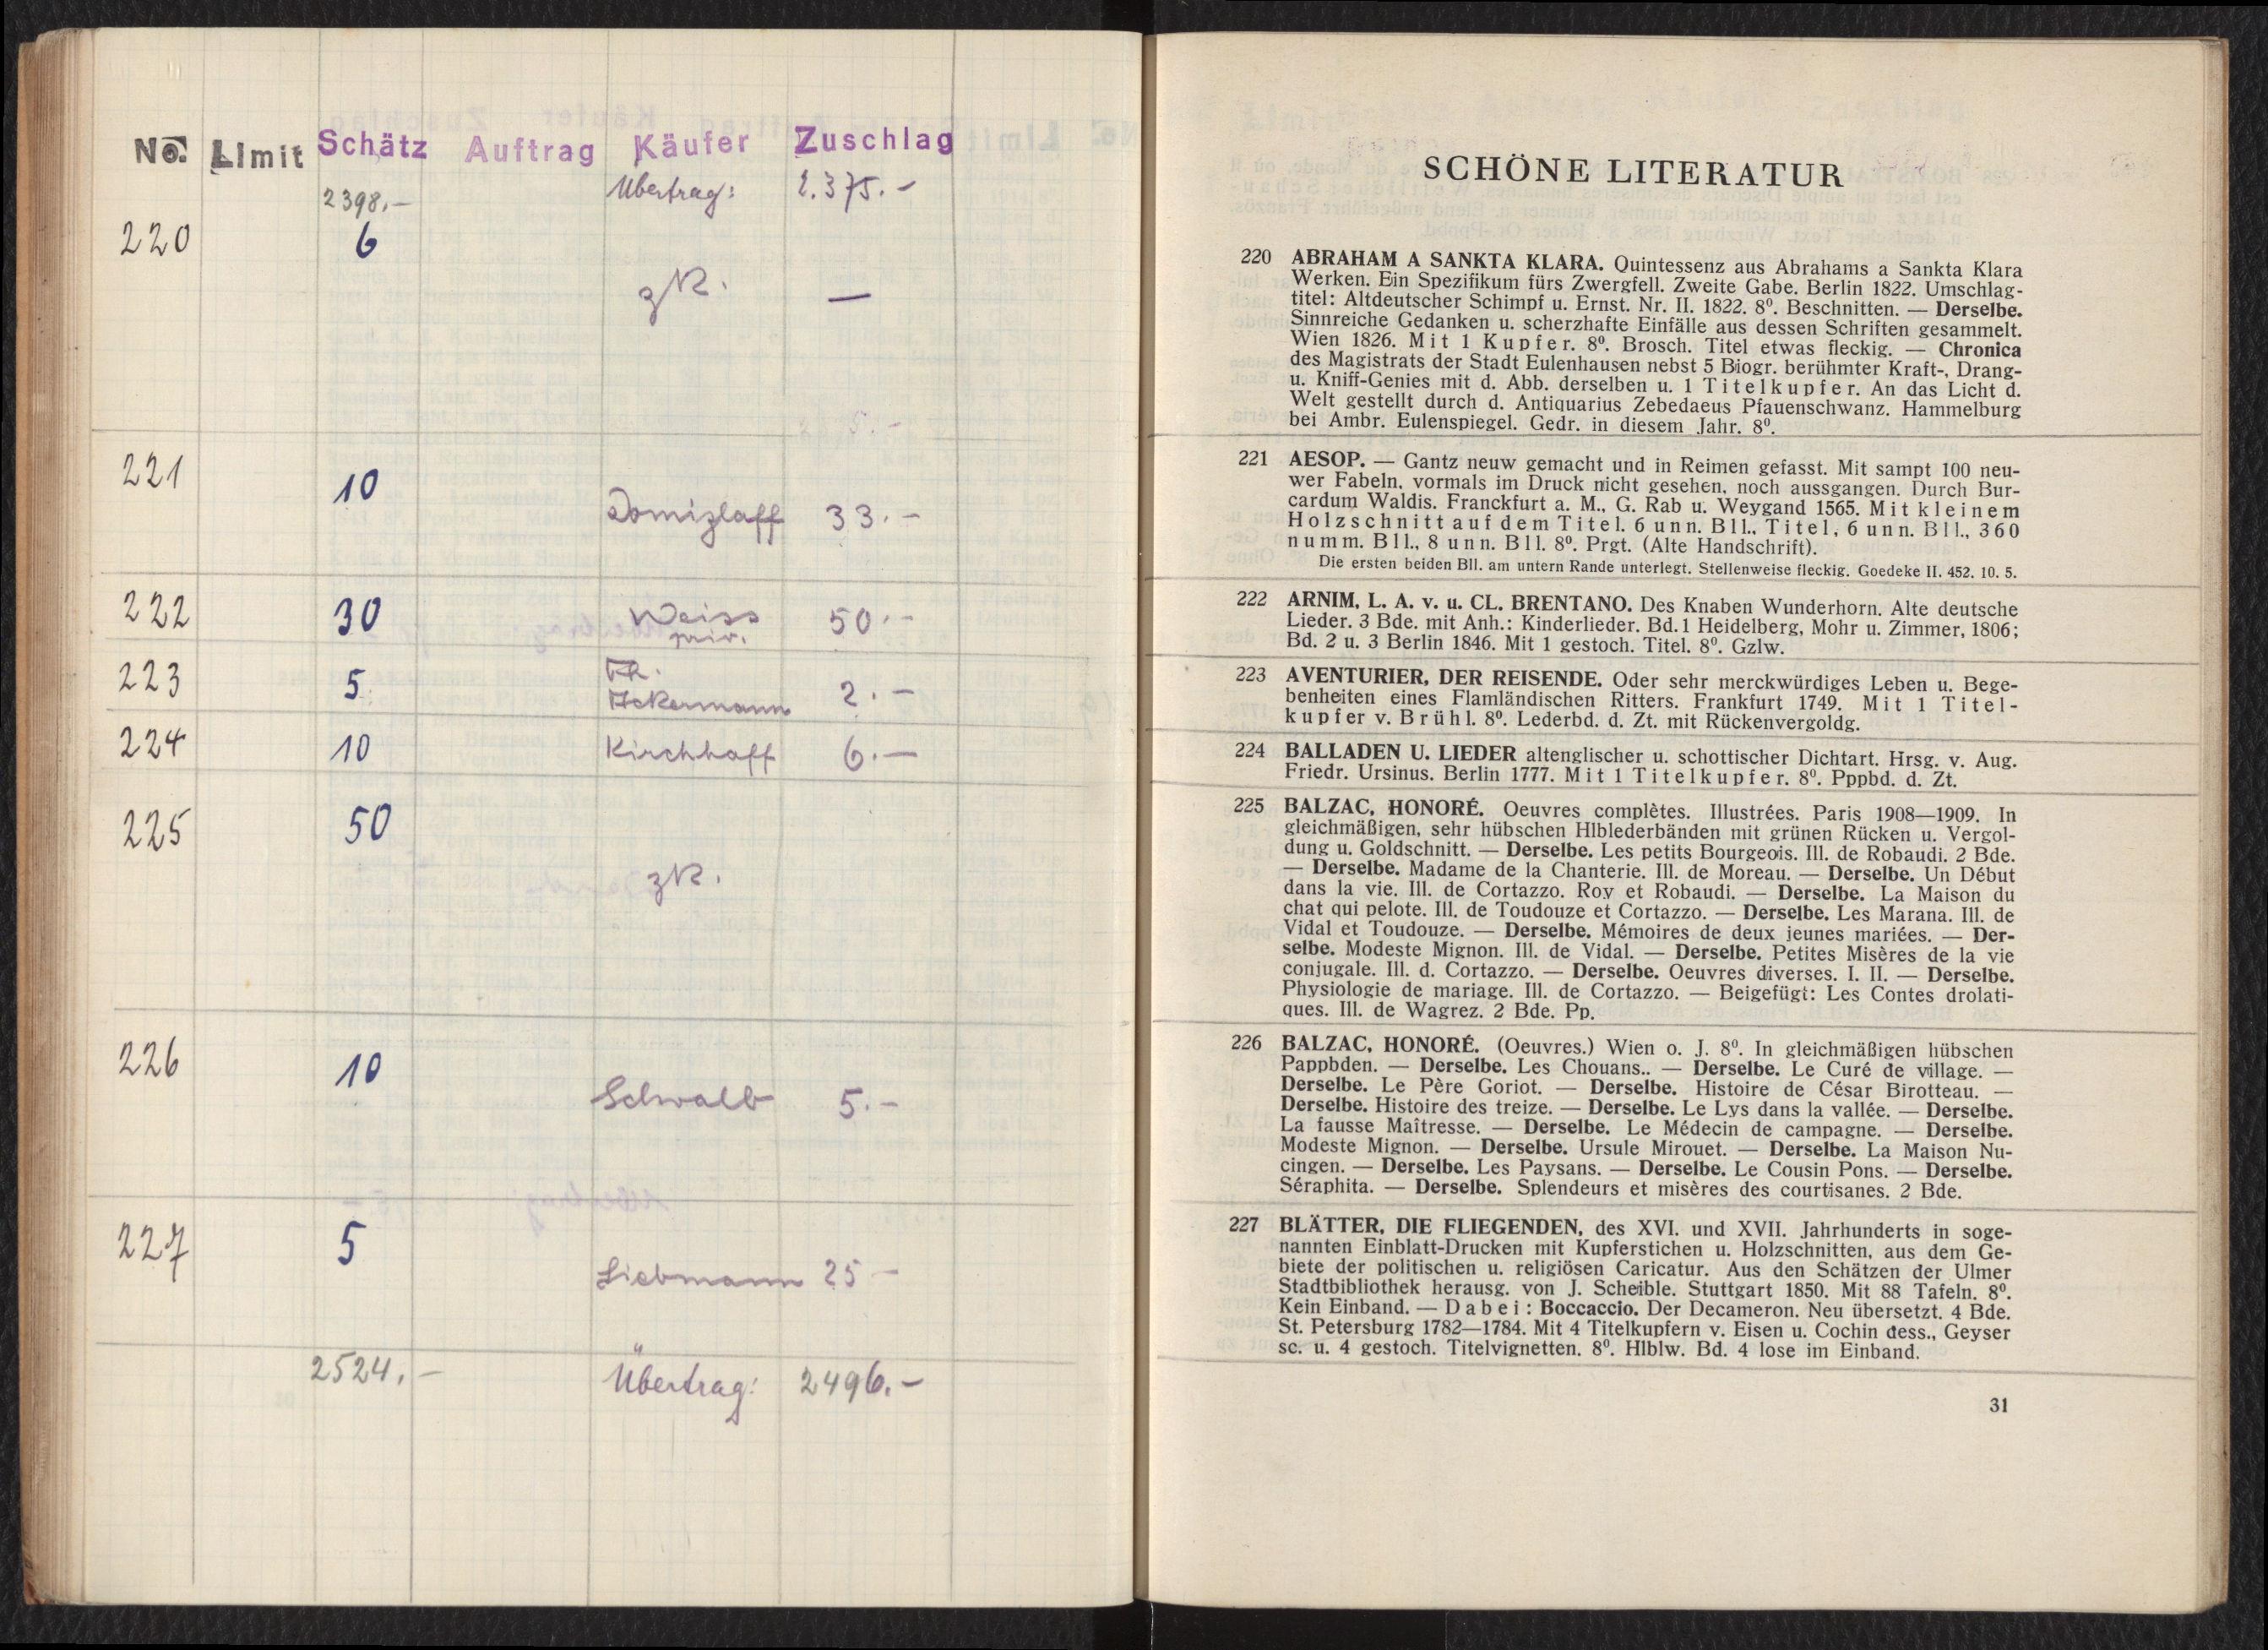 No. Limit Schätz Auftrag Käufer Zuschlag
2398.- Übertrag: 2.375.-
220 6
zR. —
221 10 Domizlaff 33.-
222 30 Weiss 50.-
priv.
223 5 Th.
Ackermann 2.-
224 10 Kirchhoff 6.—
225 50
zR.
226 10 Schwalb 5.-
227 5 Liebmann 25 -
2524.- Übertrag: 2496.-
SCHÖNE LITERATUR
220 ABRAHAM A SANKTA KLARA. Quintessenz aus Abrahams a Sankta Klara
Werken. Ein Spezifikum fürs Zwergfell. Zweite Gabe. Berlin 1822. Umschlag-
titel: Altdeutscher Schimpf u. Ernst. Nr. II. 1822. 8⁰. Beschnitten. — Derselbe.
Sinnreiche Gedanken u. scherzhafte Einfälle aus dessen Schriften gesammelt.
Wien 1826. Mit 1 Kupfer. 8⁰. Brosch. Titel etwas fleckig. — Chronica
des Magistrats der Stadt Eulenhausen nebst 5 Biogr. berühmter Kraft-, Drang-
u. Kniff-Genies mit d. Abb. derselben u. 1 Titelkupfer. An das Licht d.
Welt gestellt durch d. Antiquarius Zebedaeus Pfauenschwanz. Hammelburg
bei Ambr. Eulenspiegel. Gedr. in diesem Jahr. 8⁰.
221 AESOP. — Gantz neuw gemacht und in Reimen gefasst. Mit sampt 100 neu-
wer Fabeln, vormals im Druck nicht gesehen, noch aussgangen. Durch Bur-
cardum Waldis. Franckfurt a. M., G. Rab u. Weygand 1565. Mit kleinem
Holzschnitt auf dem Titel. 6 unn. Bll., Titel, 6 unn. Bll., 360
numm. Bll., 8 unn. Bll. 8⁰. Prgt. (Alte Handschrift).
Die ersten beiden Bll. am untern Rande unterlegt. Stellenweise fleckig. Goedeke II. 452. 10. 5.
222 ARNIM, L. A. v. u. CL. BRENTANO. Des Knaben Wunderhorn. Alte deutsche
Lieder. 3 Bde. mit Anh.: Kinderlieder. Bd. 1 Heidelberg, Mohr u. Zimmer, 1806;
Bd. 2 u. 3 Berlin 1846. Mit 1 gestoch. Titel. 8⁰. Gzlw.
223 AVENTURIER, DER REISENDE. Oder sehr merckwürdiges Leben u. Bege-
benheiten eines Flamländischen Ritters. Frankfurt 1749. Mit 1 Titel-
kupfer v. Brühl. 8⁰. Lederbd. d. Zt. mit Rückenvergoldg.
224 BALLADEN U. LIEDER altenglischer u. schottischer Dichtart. Hrsg. v. Aug.
Friedr. Ursinus. Berlin 1777. Mit 1 Titelkupfer. 8⁰. Pppbd. d. Zt.
225 BALZAC, HONORÉ. Oeuvres complètes. Illustrées. Paris 1908—1909. In
gleichmäßigen, sehr hübschen Hlblederbänden mit grünen Rücken u. Vergol-
dung u. Goldschnitt. — Derselbe. Les petits Bourgeois. Ill. de Robaudi. 2 Bde.
— Derselbe. Madame de la Chanterie. Ill. de Moreau. — Derselbe. Un Début
dans la vie. Ill. de Cortazzo. Roy et Robaudi. — Derselbe. La Maison du
chat qui pelote. Ill. de Toudouze et Cortazzo. — Derselbe. Les Marana. Ill. de
Vidal et Toudouze. — Derselbe. Mémoires de deux jeunes mariées. — Der-
selbe. Modeste Mignon. Ill. de Vidal. — Derselbe. Petites Misères de la vie
conjugale. Ill. d. Cortazzo. — Derselbe. Oeuvres diverses. I. II. — Derselbe.
Physiologie de mariage. Ill. de Cortazzo. — Beigefügt: Les Contes drolati-
ques. Ill. de Wagrez. 2 Bde. Pp.
226 BALZAC, HONORÉ. (Oeuvres.) Wien o. J. 8⁰. In gleichmäßigen hübschen
Pappbden. — Derselbe. Les Chouans.. — Derselbe. Le Curé de village. —
Derselbe. Le Père Goriot. — Derselbe. Histoire de César Birotteau. —
Derselbe. Histoire des treize. — Derselbe. Le Lys dans la vallée. — Derselbe.
La fausse Maîtresse. — Derselbe. Le Médecin de campagne. — Derselbe.
Modeste Mignon. — Derselbe. Ursule Mirouet. — Derselbe. La Maison Nu-
cingen. — Derselbe. Les Paysans. — Derselbe. Le Cousin Pons. — Derselbe.
Séraphita. — Derselbe. Splendeurs et misères des courtisanes. 2 Bde.
227 BLÄTTER, DIE FLIEGENDEN, des XVI. und XVII. Jahrhunderts in soge-
nannten Einblatt-Drucken mit Kupferstichen u. Holzschnitten, aus dem Ge-
biete der politischen u. religiösen Caricatur. Aus den Schätzen der Ulmer
Stadtbibliothek herausg. von J. Scheible. Stuttgart 1850. Mit 88 Tafeln. 8⁰.
Kein Einband. — Dabei: Boccaccio. Der Decameron. Neu übersetzt. 4 Bde.
St. Petersburg 1782—1784. Mit 4 Titelkupfern v. Eisen u. Cochin dess., Geyser
sc. u. 4 gestoch. Titelvignetten. 8⁰. Hlblw. Bd. 4 lose im Einband.
31